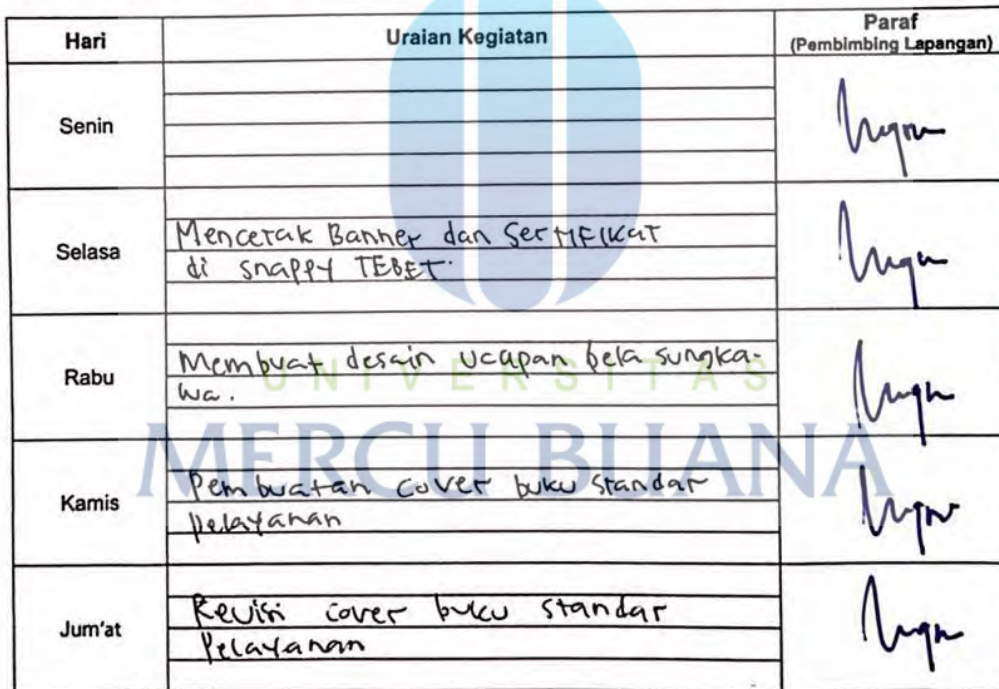 Hari Uraian Kegiatan Paraf
(Pembimbing Lapangan)
Senin
Selasa
Mencetak Banner dan Sertifikat
di snappy TEBET.
Rabu
Membuat desain ucapan bela sungka-
wa.
UNIVERSITAS
MERCU BUANA
Kamis
Pembuatan cover buku standar
pelayanan
Jum'at
Revisi cover buku standar
Pelayanan